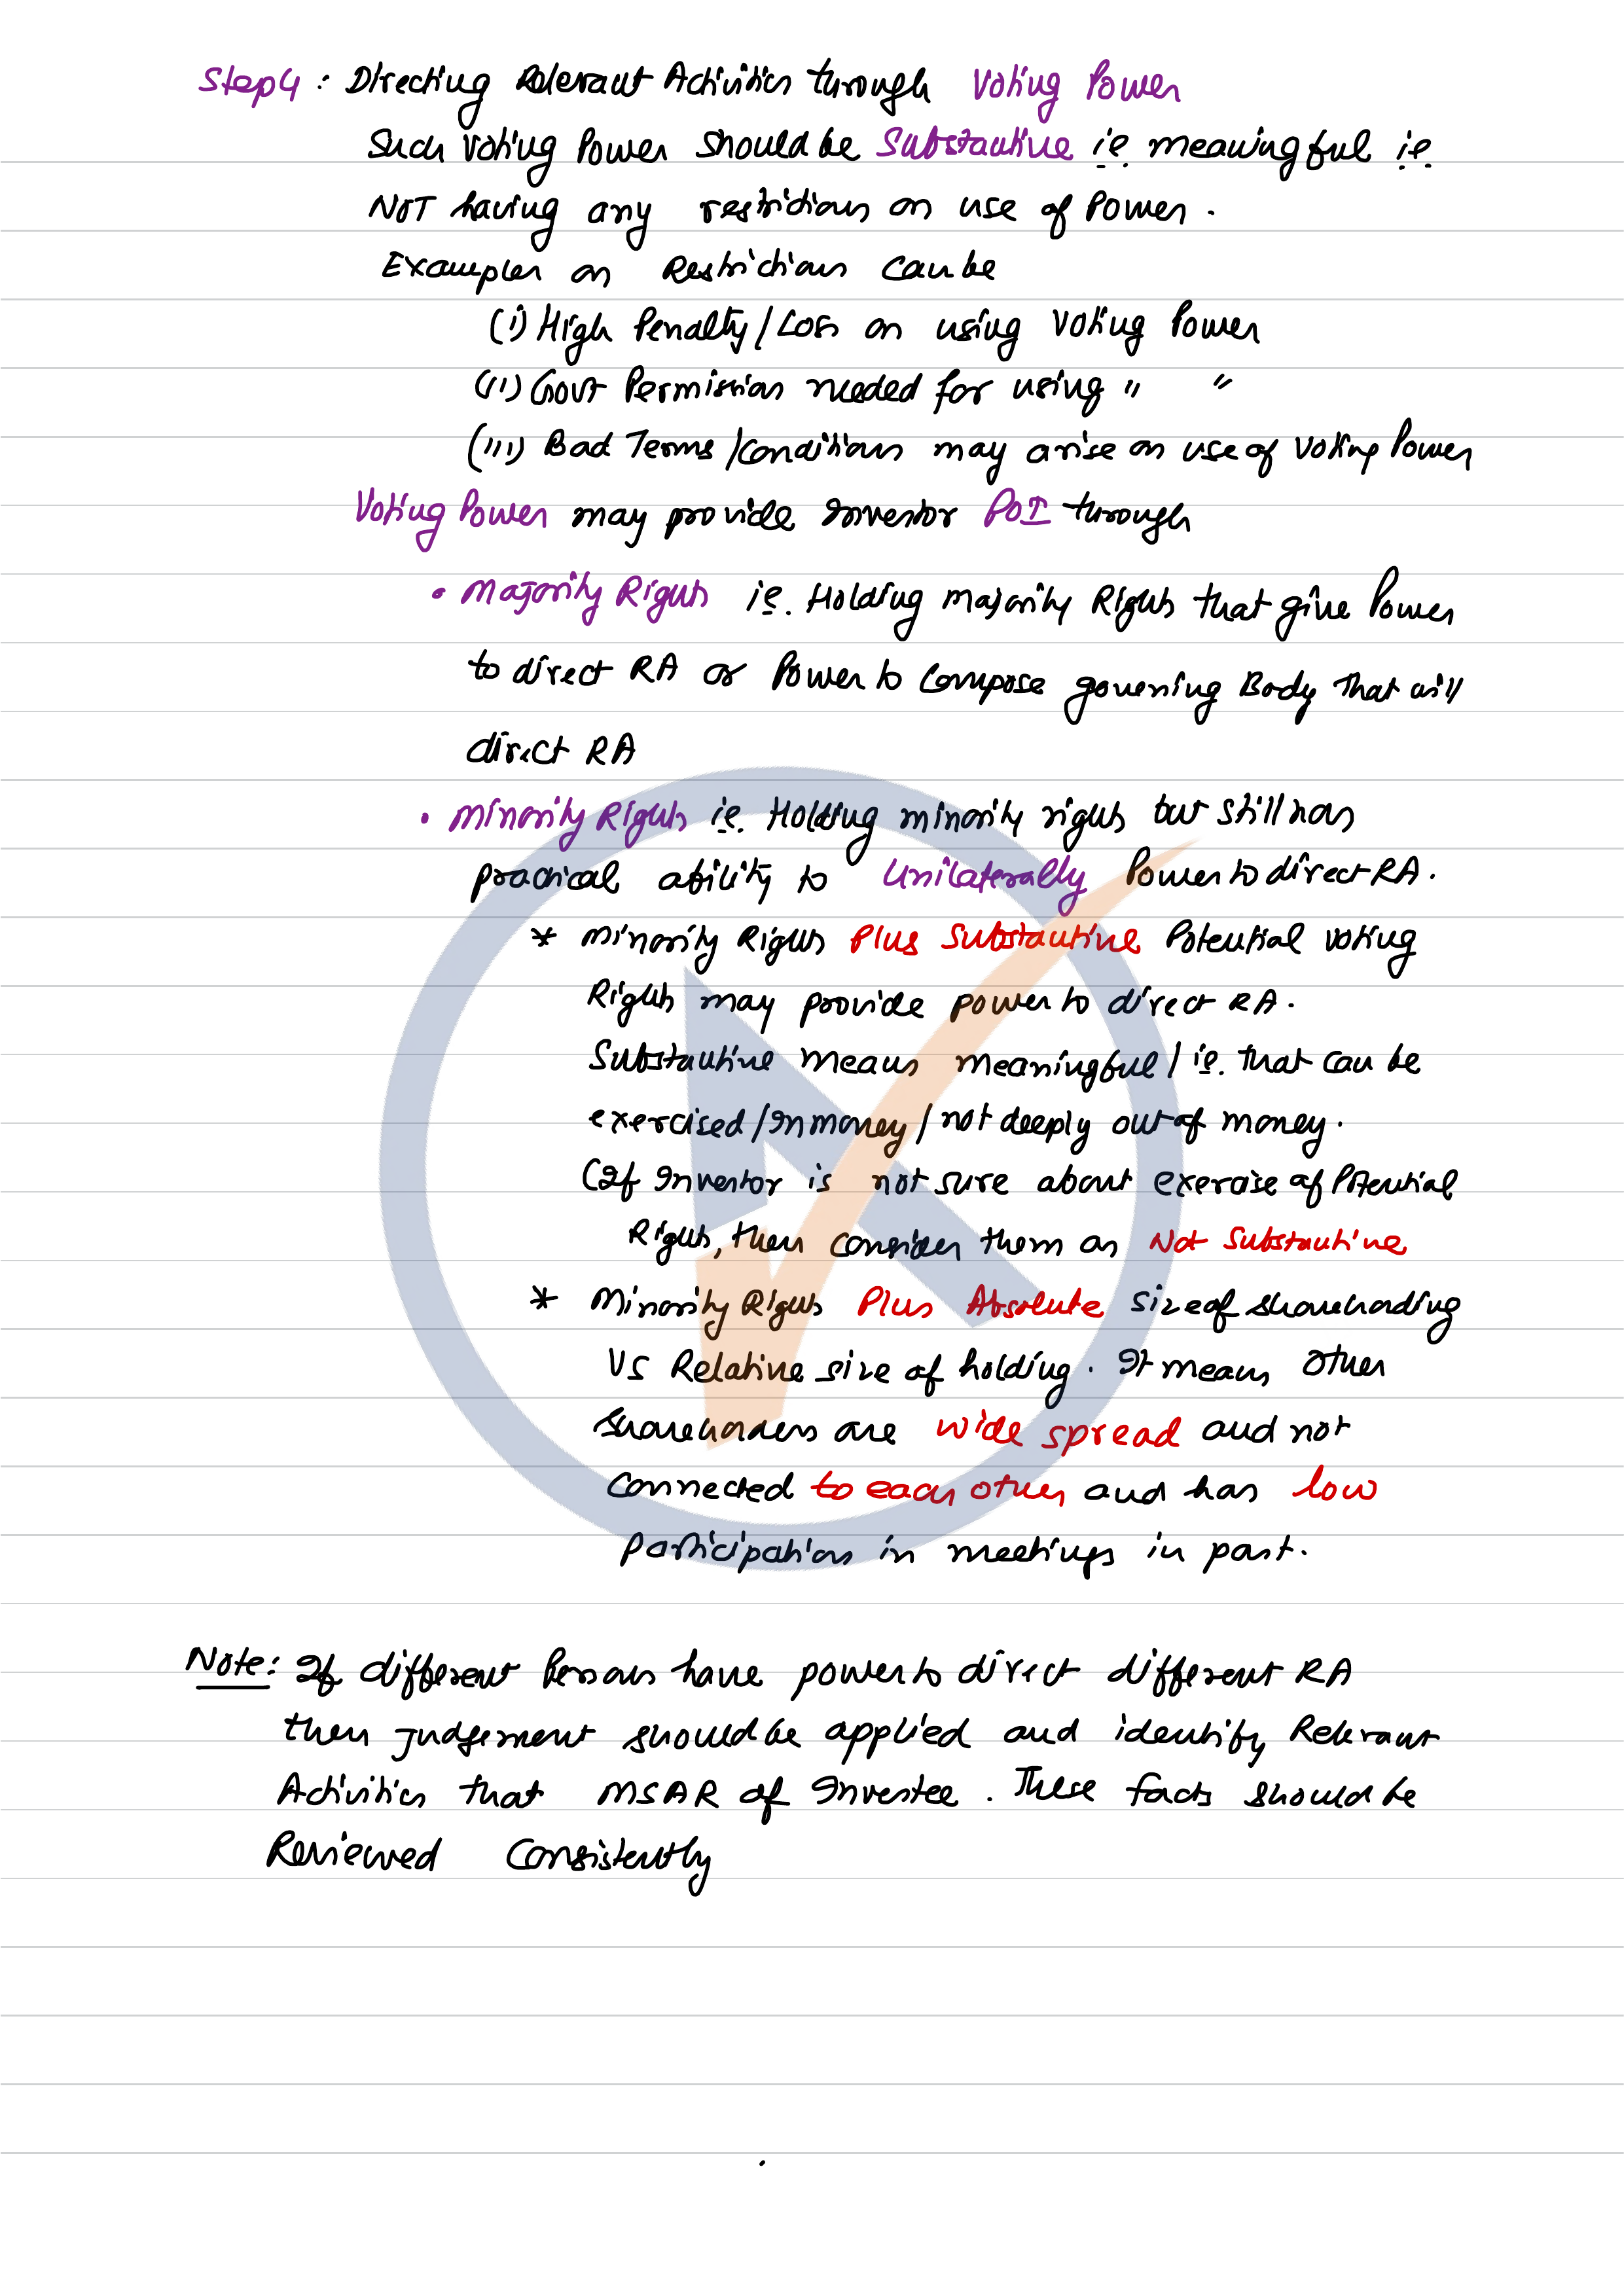 Step4 : Directing Relevant Activities through Voting Power
Such Voting Power should be Substantive i.e. meaningful i.e.
NOT having any restrictions on use of Power.
Examples on Restrictions Can be
(i) High Penalty/Loss on using Voting Power
(ii) Govt Permission needed for using " "
(iii) Bad Terms/Conditions may arise on use of Voting Power
Voting Power may provide Investor POI through
• Majority Rights i.e. Holding majority Rights that give Power
to direct RA or Power to Compose governing Body that will
direct RA
• Minority Rights i.e. Holding minority rights but still has
practical ability to Unilaterally Power to direct RA.
* Minority Rights Plus Substantive Potential voting
Rights may provide power to direct RA.
Substantive means meaningful / i.e. that can be
exercised / In money / not deeply out of money.
(If Investor is not sure about exercise of Potential
Rights, then consider them as Not Substantive
* Minority Rights Plus Absolute size of shareholding
VS Relative size of holding. It means Other
Shareholders are wide spread and not
Connected to each other and has low
Participation in meetings in past.
Note: If different Persons have power to direct different RA
then Judgement should be applied and identify Relevant
Activities that MSAR of Investee. These facts should be
Reviewed Consistently